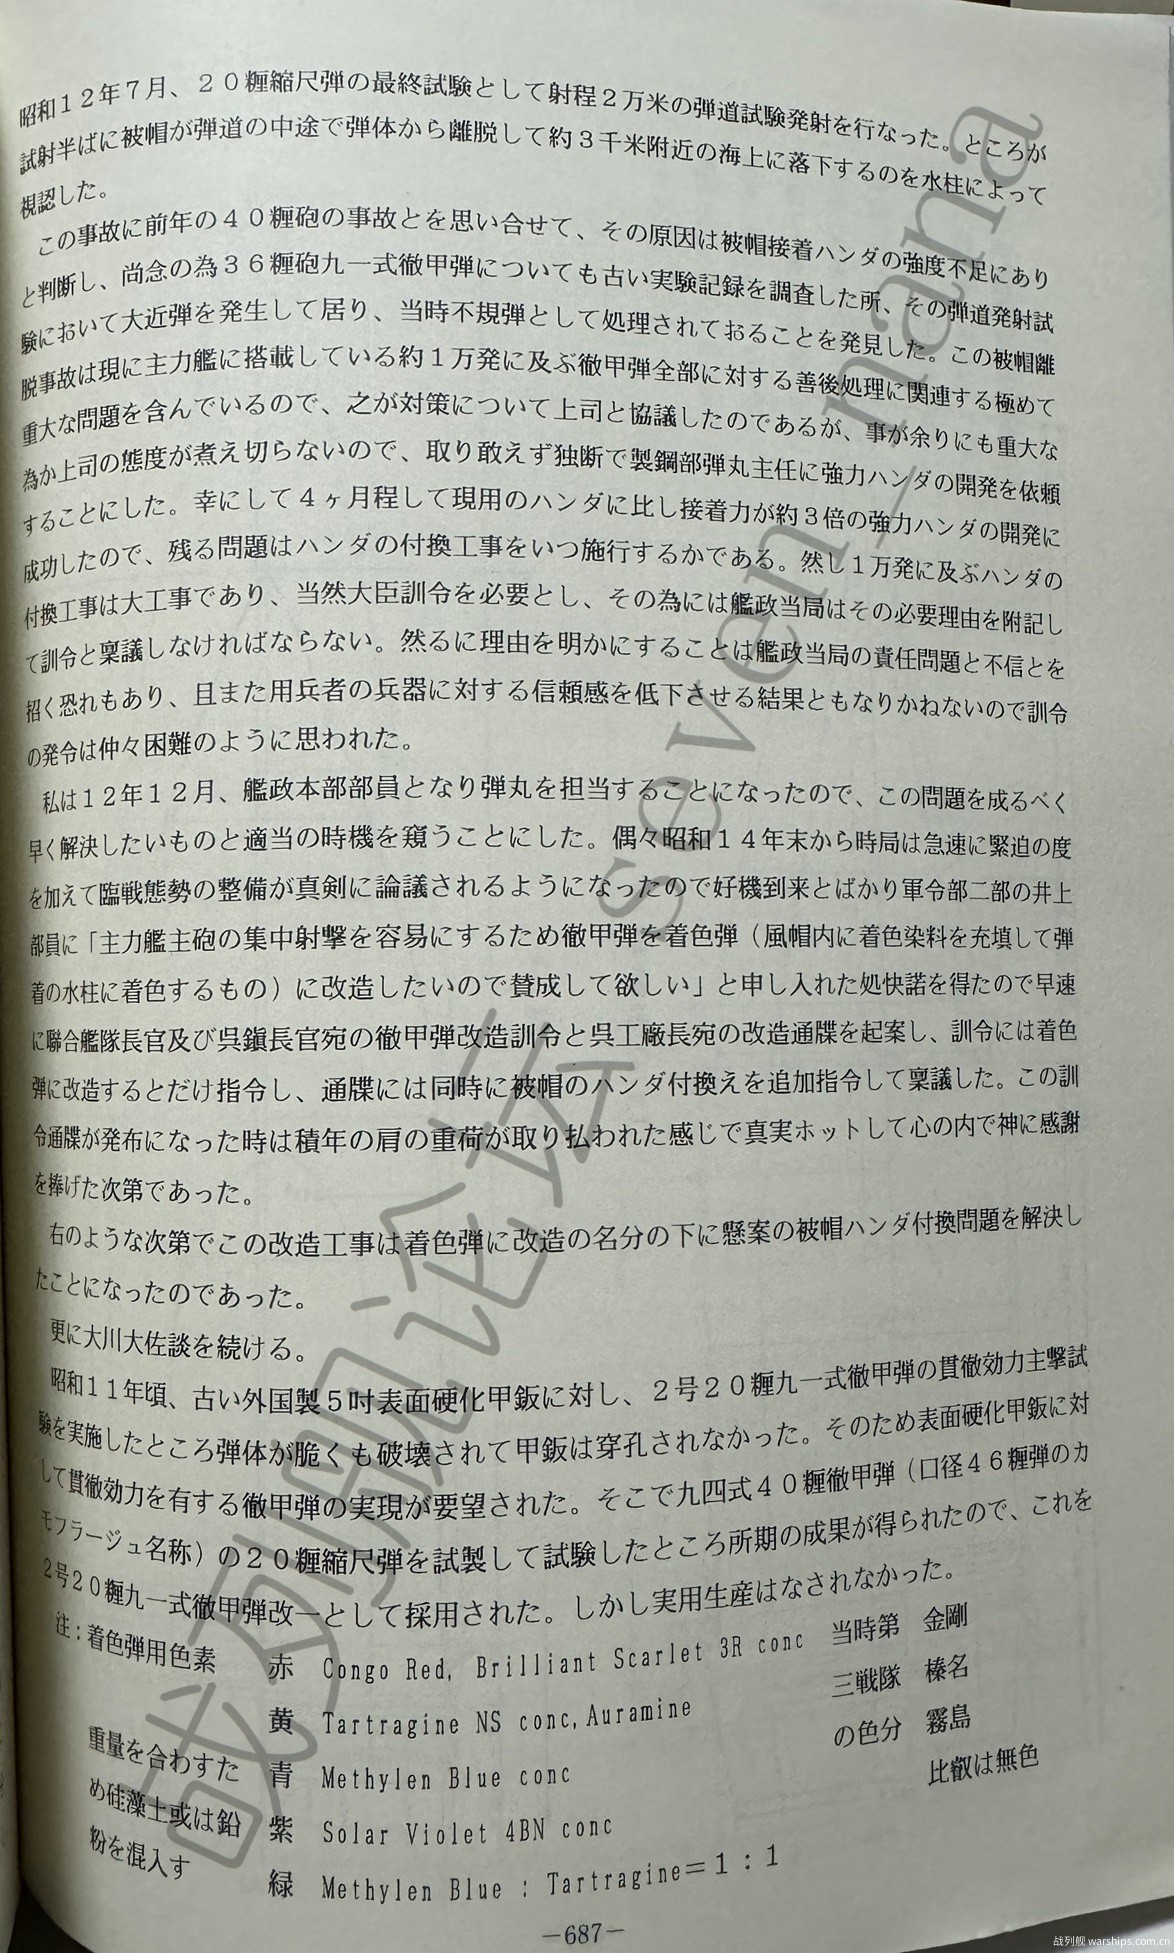 昭和12年7月、20糎縮尺弾の最終試験として射程2万米の弾道試験発射を行なった。ところが
試射半ばに被帽が弾道の中途で弾体から離脱して約3千米附近の海上に落下するのを水柱によって
視認した。
この事故に前年の40糎砲の事故とを思い合せて、その原因は被帽接着ハンダの強度不足にあり
と判断し、尚念の為36糎砲九一式徹甲弾についても古い実験記録を調査した所、その弾道発射試
験において大近弾を発生して居り、当時不規弾として処理されておることを発見した。この被帽離
脱事故は現に主力艦に搭載している約1万発に及ぶ徹甲弾全部に対する善後処理に関連する極めて
重大な問題を含んでいるので、之が対策について上司と協議したのであるが、事が余りにも重大な
為か上司の態度が煮え切らないので、取り敢えず独断で製鋼部弾丸主任に強力ハンダの開発を依頼
することにした。幸にして4ヶ月程して現用のハンダに比し接着力が約3倍の強力ハンダの開発に
成功したので、残る問題はハンダの付換工事をいつ施行するかである。然し1万発に及ぶハンダの
付換工事は大工事であり、当然大臣訓令を必要とし、その為には艦政当局はその必要理由を附記し
て訓令と稟議しなければならない。然るに理由を明かにすることは艦政当局の責任問題と不信とを
招く恐れもあり、且また用兵者の兵器に対する信頼感を低下させる結果ともなりかねないので訓令
の発令は仲々困難のように思われた。
私は12年12月、艦政本部部員となり弾丸を担当することになったので、この問題を成るべく
早く解決したいものと適当の時機を窺うことにした。偶々昭和14年末から時局は急速に緊迫の度
を加えて臨戦態勢の整備が真剣に論議されるようになったので好機到来とばかり軍令部二部の井上
部員に「主力艦主砲の集中射撃を容易にするため徹甲弾を着色弾（風帽内に着色染料を充填して弾
着の水柱に着色するもの）に改造したいので賛成して欲しい」と申し入れた処快諾を得たので早速
に聯合艦隊長官及び呉鎮長官宛の徹甲弾改造訓令と呉工廠長宛の改造通牒を起案し、訓令には着色
弾に改造するとだけ指令し、通牒には同時に被帽のハンダ付換えを追加指令して稟議した。この訓
令通牒が発布になった時は積年の肩の重荷が取り払われた感じで真実ホットして心の内で神に感謝
を捧げた次第であった。
右のような次第でこの改造工事は着色弾に改造の名分の下に懸案の被帽ハンダ付換問題を解決し
たことになったのであった。
更に大川大佐談を続ける。
昭和11年頃、古い外国製5吋表面硬化甲鈑に対し、2号20糎九一式徹甲弾の貫徹効力主撃試
験を実施したところ弾体が脆くも破壊されて甲鈑は穿孔されなかった。そのため表面硬化甲鈑に対
して貫徹効力を有する徹甲弾の実現が要望された。そこで九四式40糎徹甲弾（口径46糎弾のカ
モフラージュ名称）の20糎縮尺弾を試製して試験したところ所期の成果が得られたので、これを
2号20糎九一式徹甲弾改一として採用された。しかし実用生産はなされなかった。
注：着色弾用色素 赤 Congo Red, Brilliant Scarlet 3R conc 当時第 金剛
黄 Tartragine NS conc, Auramine 三戦隊 榛名
重量を合わすた 青 Methylen Blue conc の色分 霧島
め硅藻土或は鉛 紫 Solar Violet 4BN conc 比叡は無色
粉を混入す 緑 Methylen Blue : Tartragine＝1：1
－687－
战列舰论坛 seven_nana
战列舰 warships.com.cn